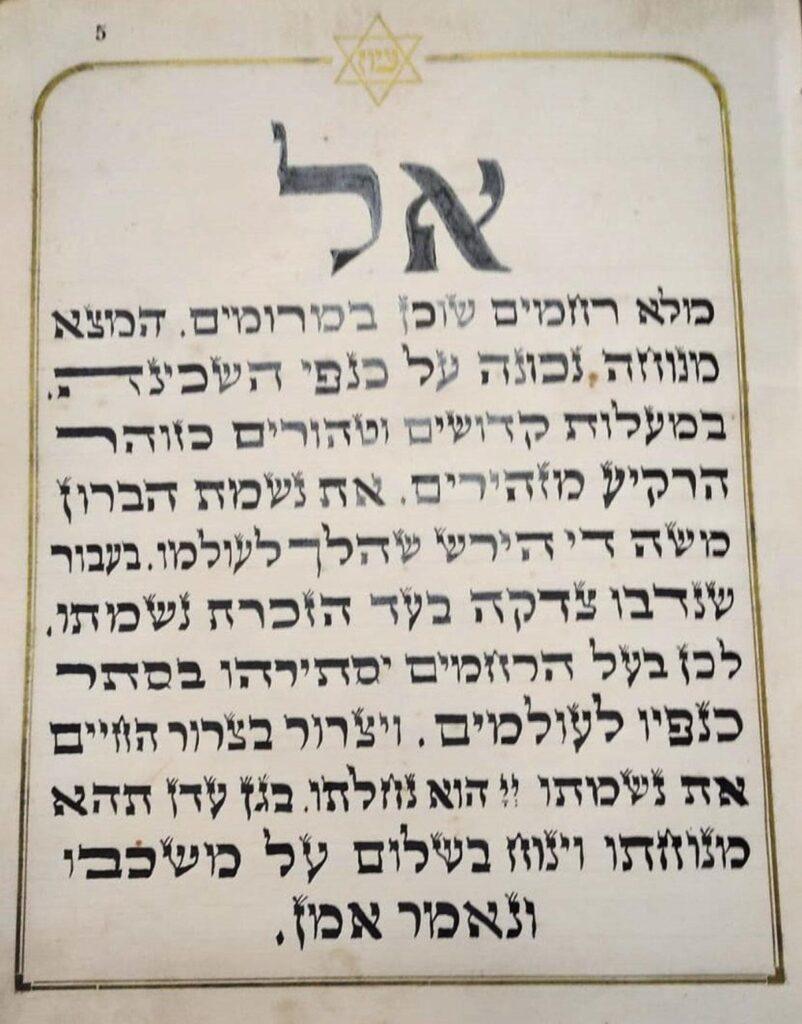 5
ציון
אל
מלא רחמים שוכן במרומים. המצא
מנוחה נכונה על כנפי השכינה.
במעלות קדושים וטהורים כזוהר
הרקיע מזהירים. את נשמת הברון
משה די הירש שהלך לעולמו. בעבור
שנדבו צדקה בעד הזכרת נשמתו.
לכן בעל הרחמים יסתירהו בסתר
כנפיו לעולמים. ויצרור בצרור החיים
את נשמתו יי הוא נחלתו. בגן עדן תהא
מנוחתו וינוח בשלום על משכבו
ונאמר אמן.